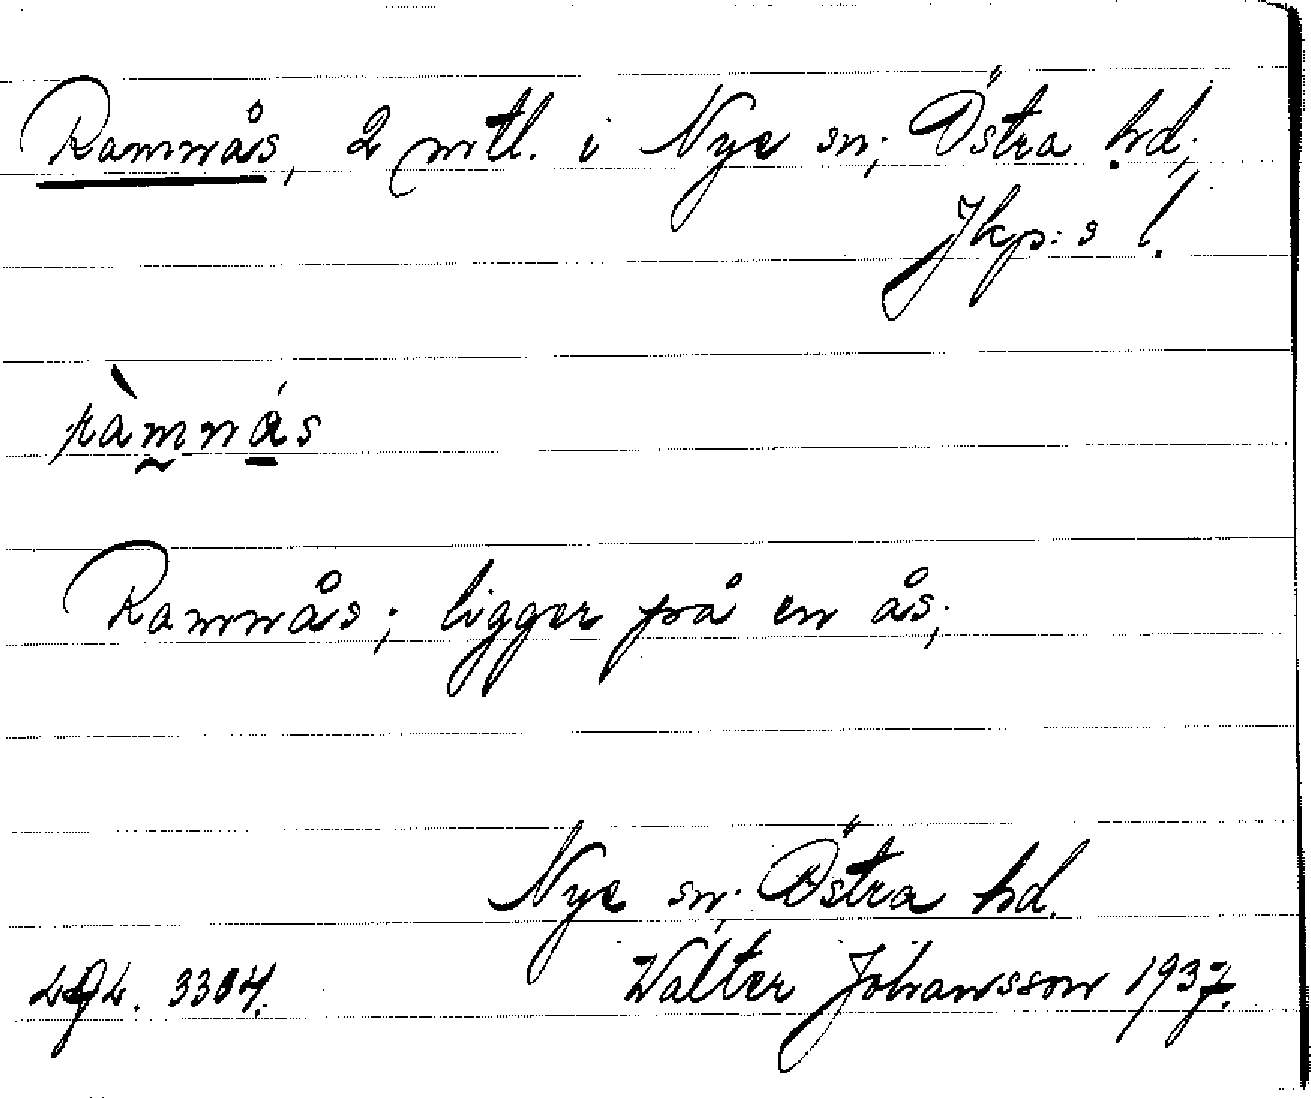 Ramnås, 2 mtl. i Nye sn; Östra hd;
Jkp:s l.
ràmnás
Ramnås; ligger på en ås;
Nye sn; Östra hd.
3304. Walter Johansson 1937.